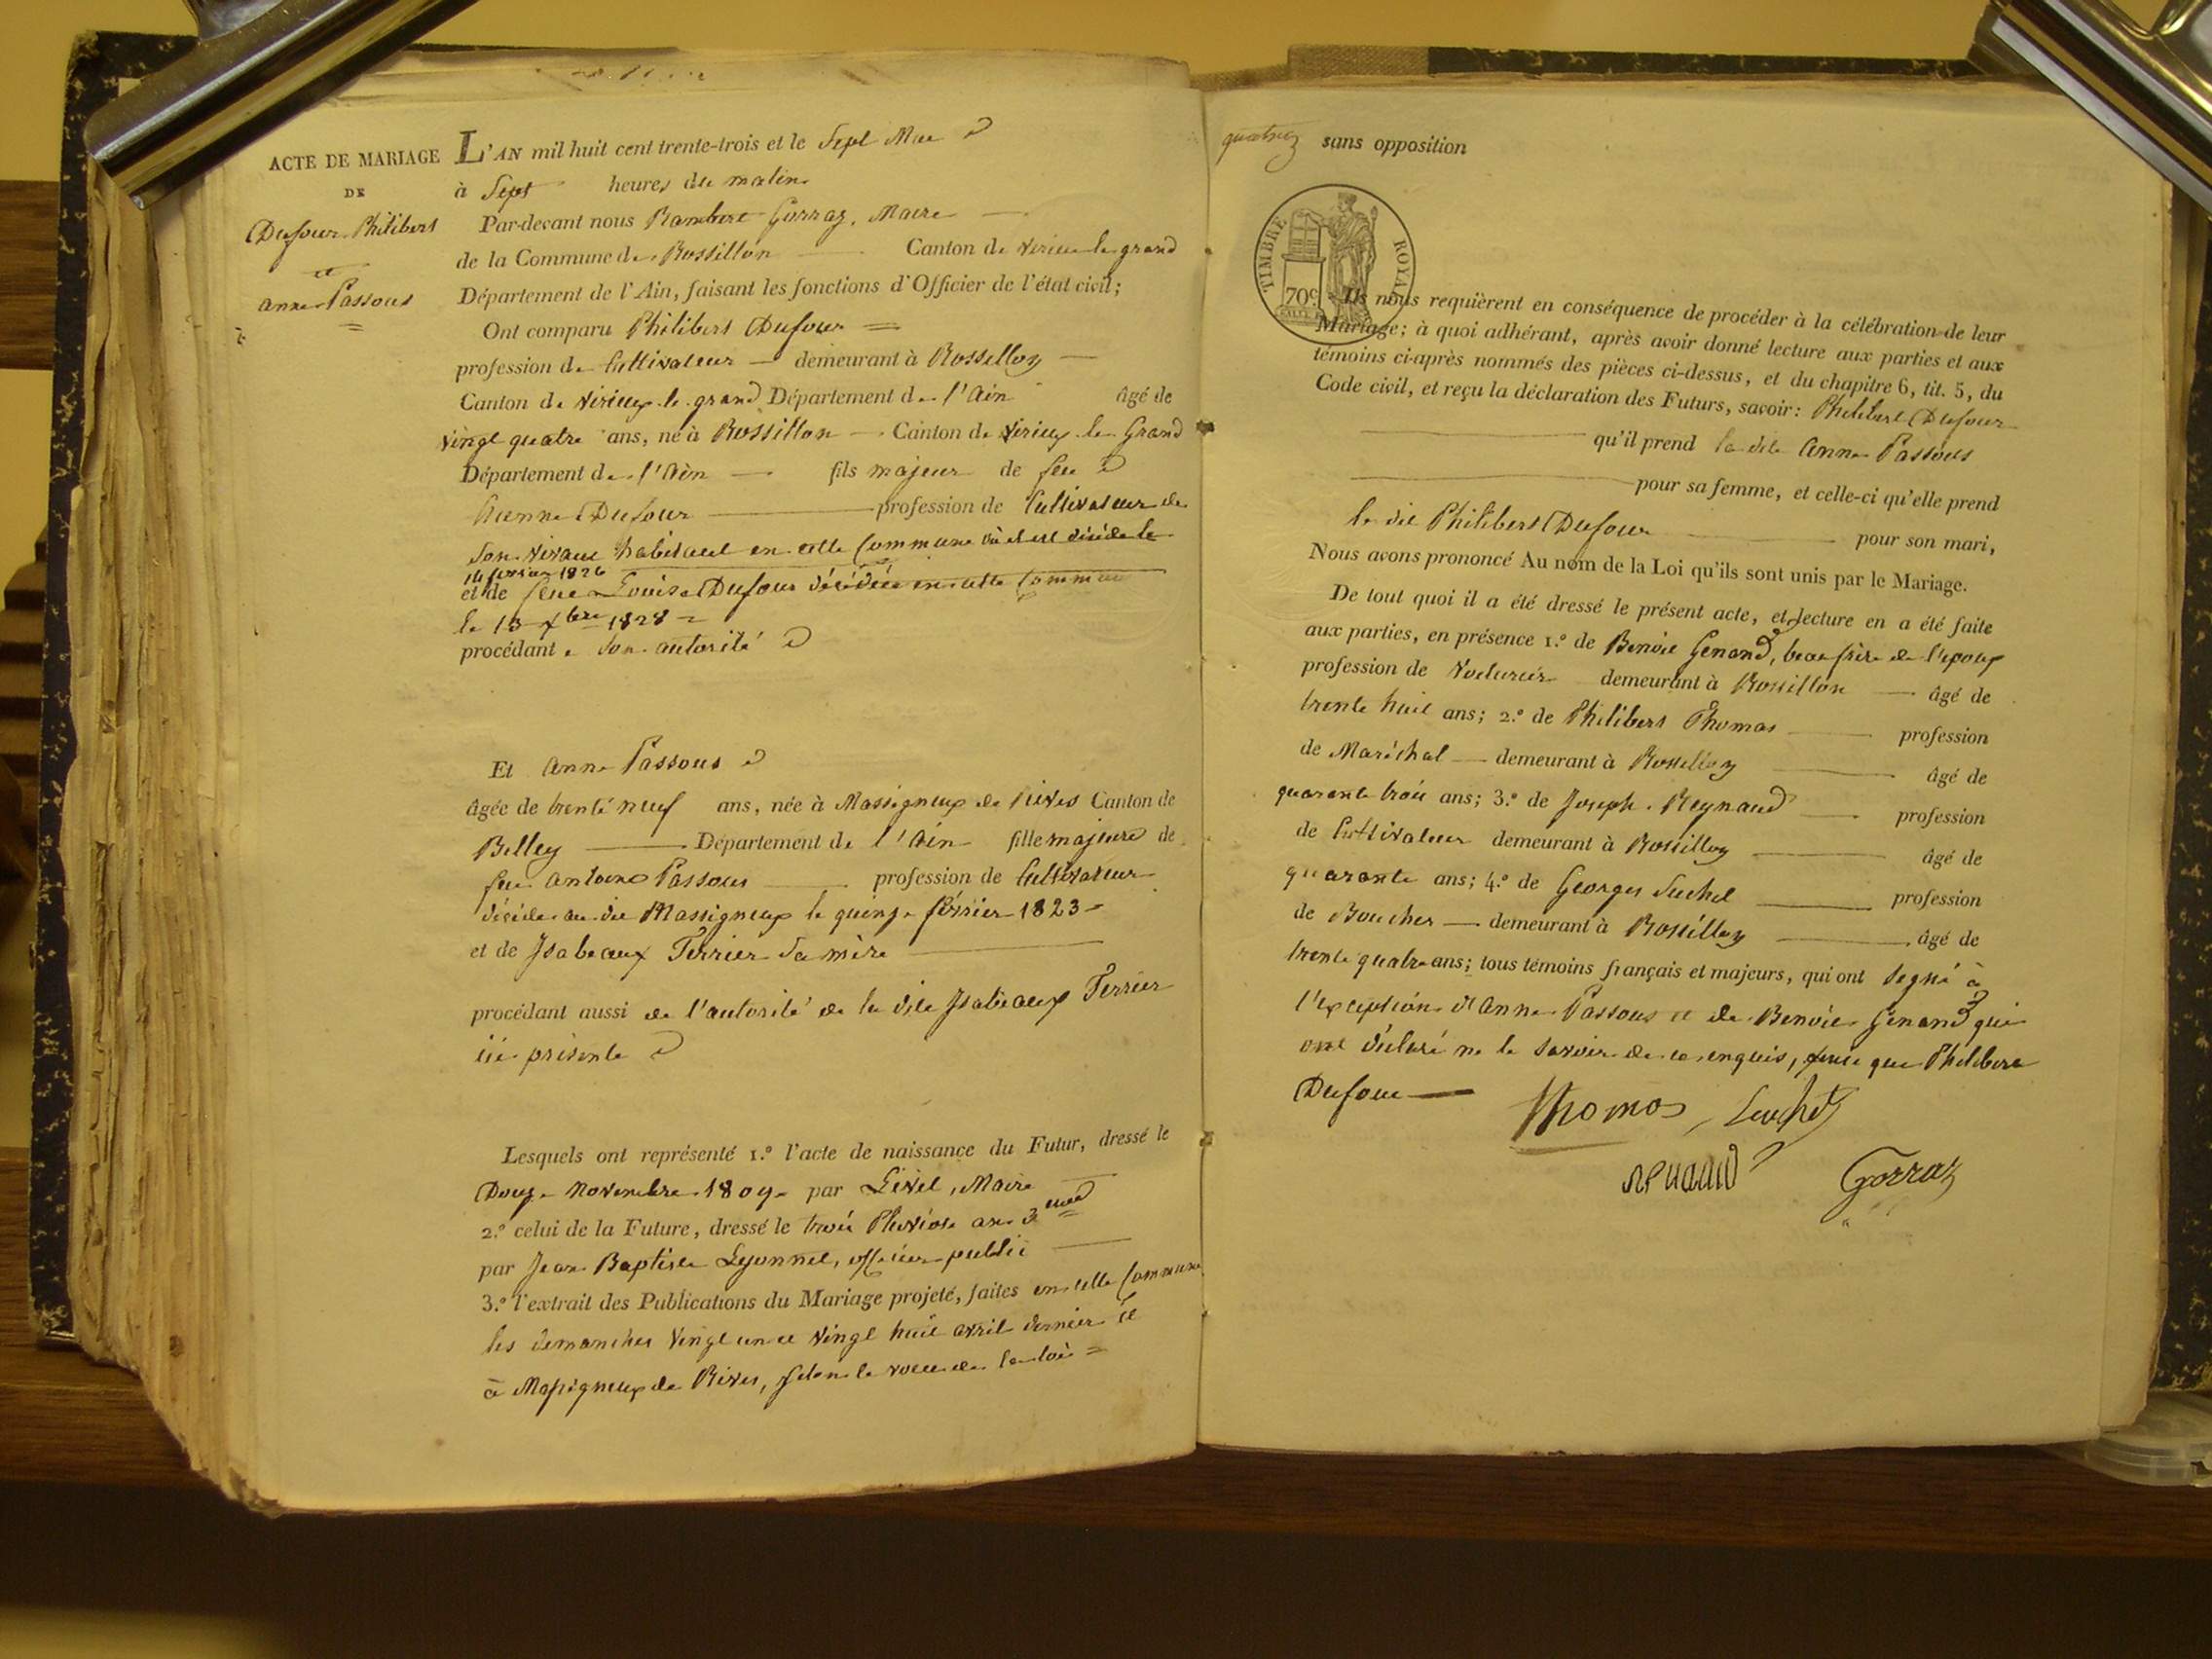 ACTE DE MARIAGE
DE
Dufour Philibert
et
anne Passous
L'AN mil huit cent trente-trois et le Sept Mai
à Sept heures du matin
Par-devant nous Rambert Gorraz, Maire
de la Commune de Rossillon Canton de Virieu le grand
Département de l'Ain, faisant les fonctions d'Officier de l'état civil;
Ont comparu Philibert Dufour
profession de Cultivateur demeurant à Rossillon
Canton de Virieux le grand Département de l'Ain âgé de
vingt quatre ans, né à Rossillon Canton de Virieux le Grand
Département de l'Ain fils majeur de feu
Dufour profession de Cultivateur de
son vivant habitant en cette Commune où il est décédé le
14 février 1826
et de feue Louise Dufour décédée en cette Commune
le 13 xbre 1828
procédant de son autorité
Et Anne Passous
âgée de trente neuf ans, née à Massigneux de Rives Canton de
Belley Département de l'Ain fille majeure de
feu antoine Passous profession de Cultivateur
décédé au dit Massigneux le quinze février 1823
et de Isabeaux Terrier sa mère
procédant aussi de l'autorité de la dite Isabeaux Terrier
ici présente
Lesquels ont représenté 1.º l'acte de naissance du Futur, dressé le
Douze Novembre 1809 par Livet, Maire
2.º celui de la Future, dressé le trois Pluviose an 3
par Jean Baptiste Lyonnet, officier public
3.º l'extrait des Publications du Mariage projeté, faites en cette Commune
les dimanches vingt un et vingt huit avril dernier et
à Massigneux de Rives, selon le voeu de la loi
sans opposition
TIMBRE ROYAL
70c
Ils nous requièrent en conséquence de procéder à la célébration de leur
Mariage; à quoi adhérant, après avoir donné lecture aux parties et aux
témoins ci-après nommés des pièces ci-dessus, et du chapitre 6, tit. 5, du
Code civil, et reçu la déclaration des Futurs, savoir: Philibert Dufour
qu'il prend la dite Anne Passous
pour sa femme, et celle-ci qu'elle prend
le dit Philibert Dufour pour son mari,
Nous avons prononcé Au nom de la Loi qu'ils sont unis par le Mariage.
De tout quoi il a été dressé le présent acte, et lecture en a été faite
aux parties, en présence 1.º de Benoit Genand, beau frère de l'epoux
profession de Voiturier demeurant à Rossillon âgé de
trente huit ans; 2.º de Philibert Thomas profession
de Maréchal demeurant à Rossillon âgé de
quarante trois ans; 3.º de Joseph Reynaud profession
de Cultivateur demeurant à Rossillon âgé de
quarante ans; 4.º de Georges Suchet profession
de Boucher demeurant à Rossillon âgé de
trente quatre ans; tous témoins français et majeurs, qui ont signé à
l'exception d'anne Passous et de Benoit Genand qui
ont déclaré ne le savoir de ce enquis, que Philibert
Dufour
Thomas Suchet
Gorraz